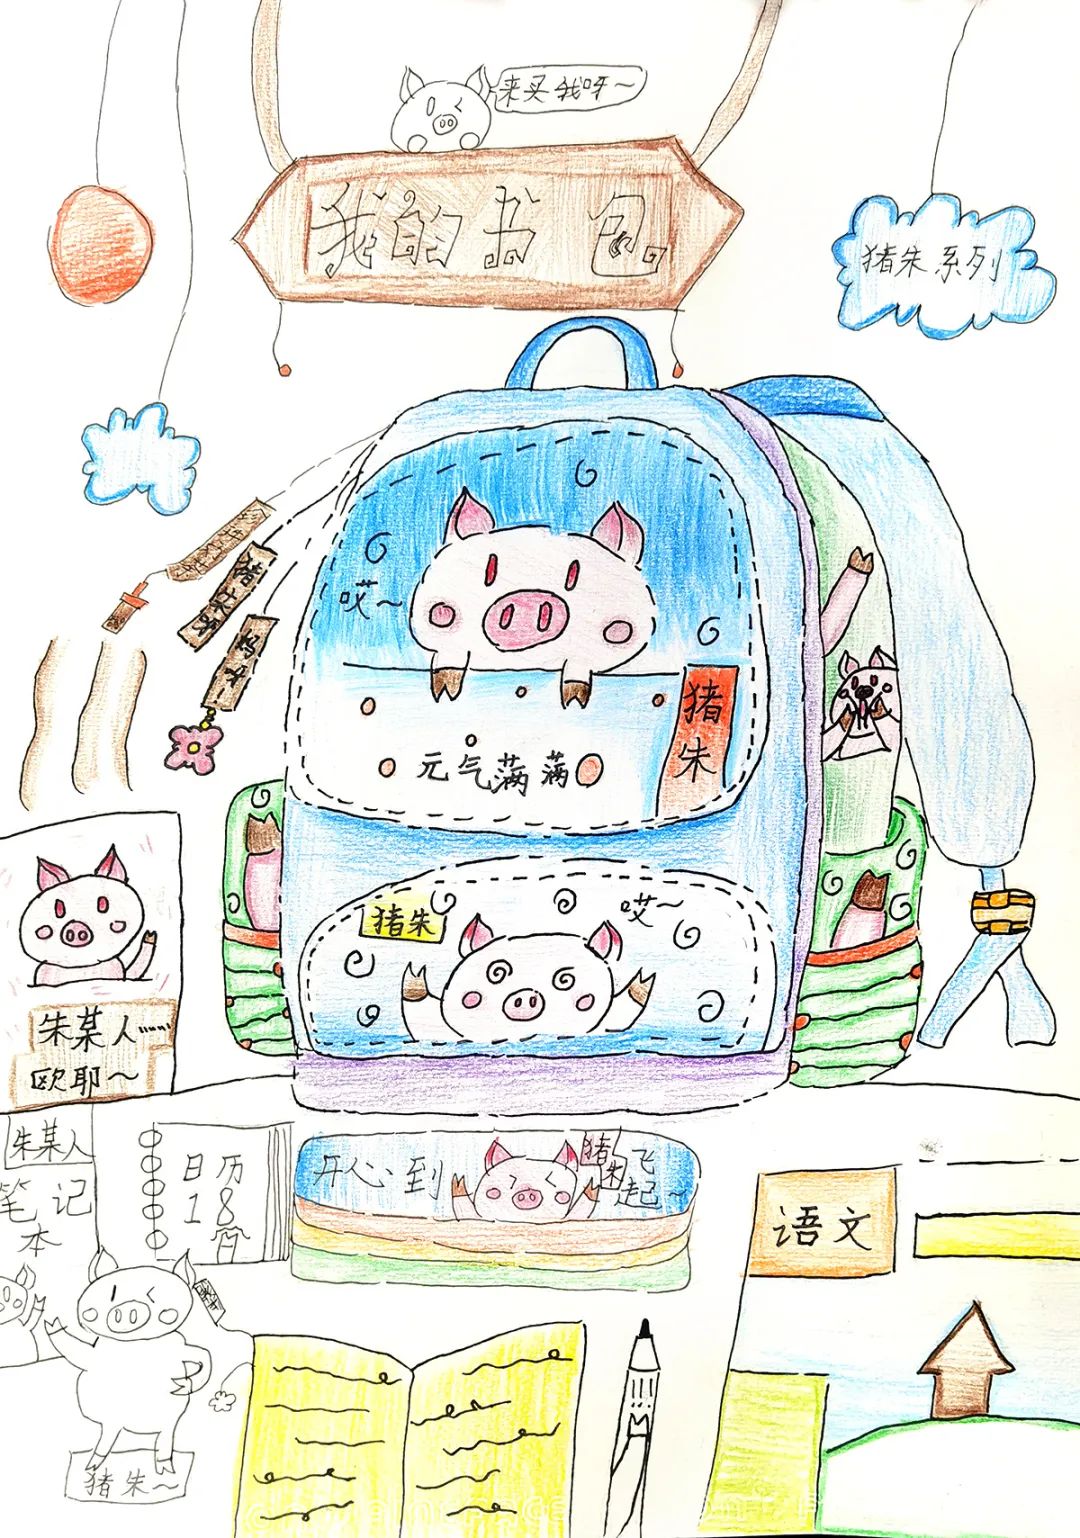 来买我呀~
我的书包
猪朱系列
猪朱呀
妈呀!
哎~
猪
朱
元气满满
猪朱
哎~
朱某人······
欧耶~
朱某人
笔记
本
日历
18
开心到
猪朱
飞
起~
语文
猪朱~